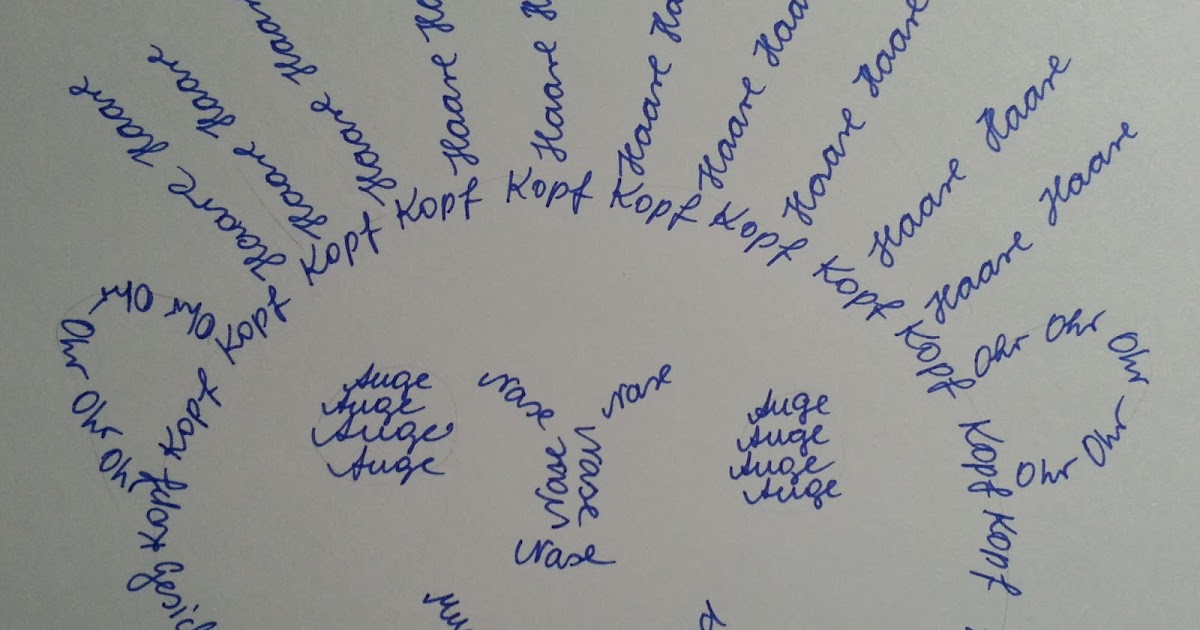 Haare Haare
Haare Haare
Haare
Haare
Haare
Haare
Haare
Haare Haare
Haare Haare
Haare Haare
Kopf Kopf Kopf Kopf Kopf Kopf Kopf Kopf
Ohr Ohr Ohr Ohr Ohr
Ohr Ohr Ohr Ohr Ohr
Auge
Auge
Auge
Auge
Nase Nase
Nase Nase
Nase
Auge
Auge
Auge
Auge
Kopf Kopf
Kopf Kopf